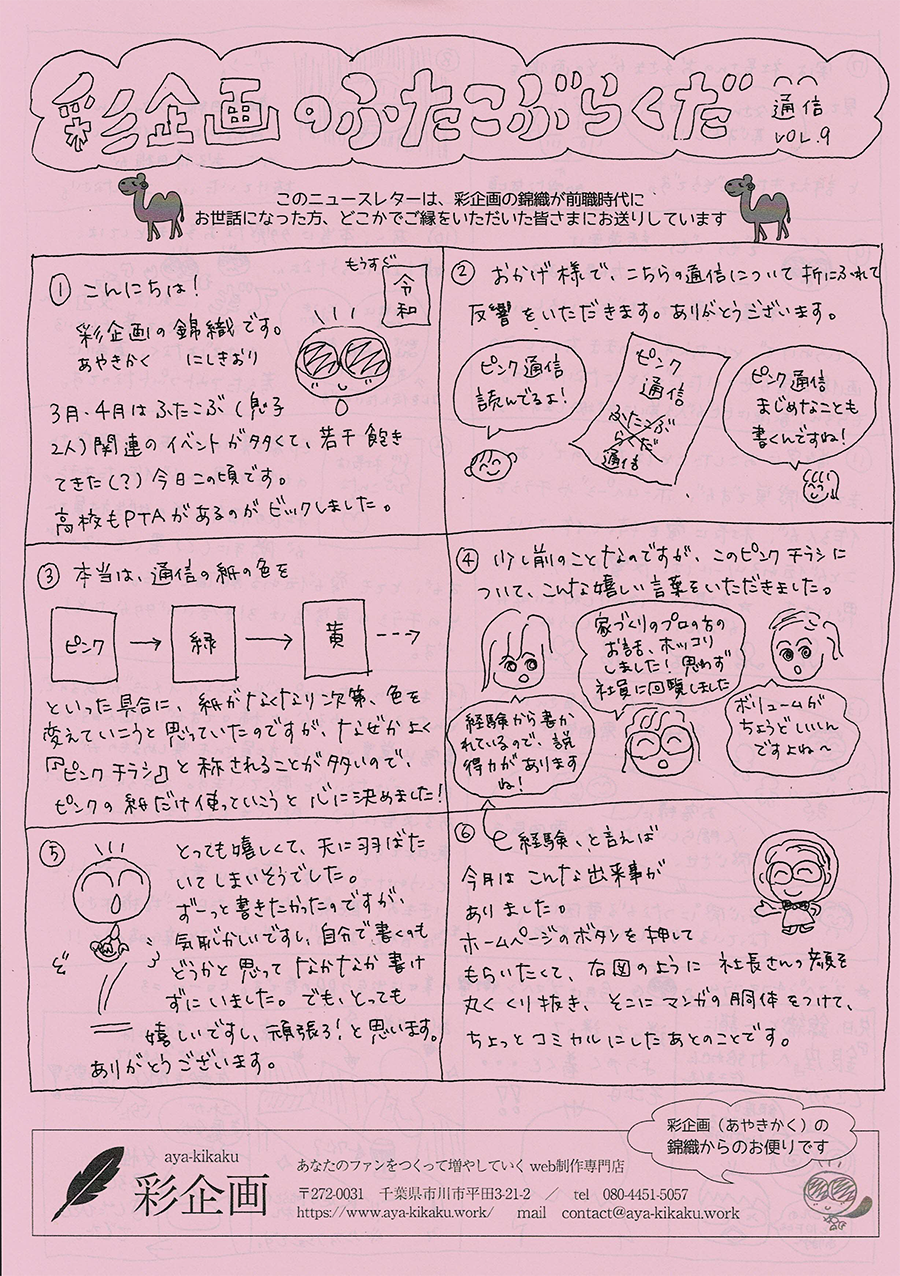 彩企画のふたこぶらくだ
通信
VOL.9
このニュースレターは、彩企画の錦織が前職時代に
お世話になった方、どこかでご縁をいただいた皆さまにお送りしています
① こんにちは！
もうすぐ
令和
彩企画の錦織です。
あやきかく にしきおり
3月、4月はふたこぶ（息子
2人）関連のイベントが多くて、若干飽き
てきた（？）今日この頃です。
高校もPTAがあるのがビックしました。
② おかげ様で、こちらの通信について折にふれて
反響をいただきます。ありがとうございます。
ピンク通信
読んでるよ！
ピンク
通信
ふたこぶ
らくだ
通信
ピンク通信
まじめなことも
書くんですね！
③ 本当は、通信の紙の色を
ピンク → 緑 → 黄 ⇢
といった具合に、紙がなくなり次第、色を
変えていこうと思っていたのですが、なぜかよく
『ピンクチラシ』と称されることが多いので、
ピンクの紙だけ使っていこうと心に決めました！
④ 少し前のことなのですが、このピンクチラシに
ついて、こんな嬉しい言葉をいただきました。
経験から書か
れているので、説
得力があります
ね！
家づくりのプロの方の
お話も、ホッコリ
しました！思わず
社員に回覧しました
ボリュームが
ちょうどいいん
ですよね〜
⑤ とっても嬉しくて、天に羽ばた
いてしまいそうでした。
ずーっと書きたかったのですが、
気恥かしいですし、自分で書くのも
どうかと思ってなかなか書け
ずにいました。でも、とっても
嬉しいですし、頑張ろ！と思います。
ありがとうございます。
⑥ 経験、と言えば
今月はこんな出来事が
ありました。
ホームページのボタンを押して
もらいたくて、右図のように社長さんの顔を
丸くくり抜き、そこにマンガの胴体をつけて、
ちょっとコミカルにしたあとのことです。
彩企画（あやきかく）の
錦織からのお便りです
aya-kikaku
彩企画
あなたのファンをつくって増やしていく web制作専門店
〒272-0031 千葉県市川市平田3-21-2 ／ tel 080-4451-5057
https://www.aya-kikaku.work/ mail contact@aya-kikaku.work